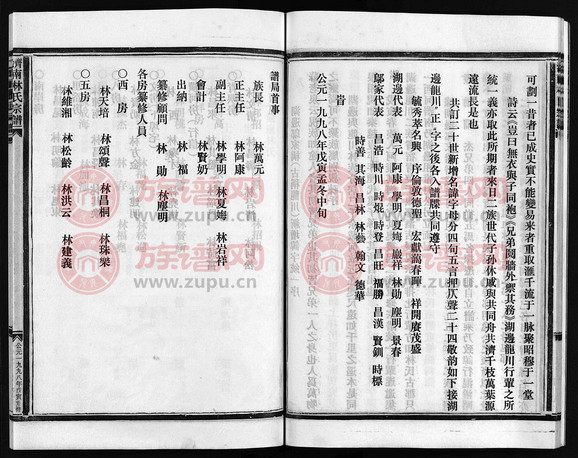 可劃一昔者已成史實不能變易来者重取滙千流于一脉聚昭穆于一堂
詩云《豈曰無衣與子同袍》《兄弟鬩牆外禦其務》湖邊龍川行輩之所
統一義亦取此所期者来日二族世代子孙休戚與共同舟共濟千枝萬葉源
遠流長是也
共訂二十世新增名諱字母分四句五言押仄聲二十四敬韵如下接湖
邊龍川，正，字之後各入譜牒共同遵守
毓秀萃名興 序倫敦德聖 宏獻滿春暉 祥開賡茂盛
湖邊代表 萬元 阿康 學明 夏娒 嚴祥 林勛 塵明 景春
鄔家代表 昌浩 時川 時焜 時登 昌旺 福勝 昌漢 賢釧 時標
時善 其海 昌林 林藝 翰文 德華
旹
公元一九九八年戊寅孟冬中旬
譜局首事
族長 林萬元
正主任 林阿康
副主任 林學明 林夏娒 林岩祥
會計 林賢奶
出納 林福
纂修顧問 林勛 林塵明
各房纂修人員
〇西房
林天培 林頌聲 林昌桐 林珠樂
〇五房
林維湘 林松齡 林洪云 林建義
濟南林氏宗譜
公元一九九八年戊寅
族谱网
www.zupu.cn
族谱网
www.zupu.cn
族谱网
www.zupu.cn
族谱网
www.zupu.cn